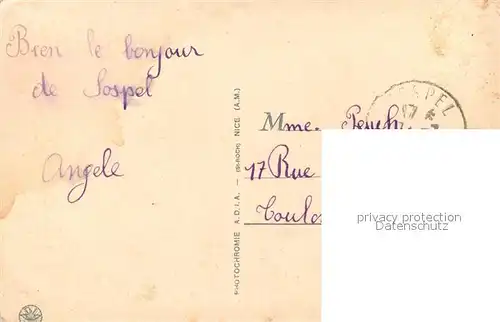 Bien le bonjour
de Sospel
Angele
PHOTOCHROMIE A.D.I.A. — (St-ROCH) NICE (A.M.)
Mme.
17 Rue
Toulo
SPEL
17
privacy protection